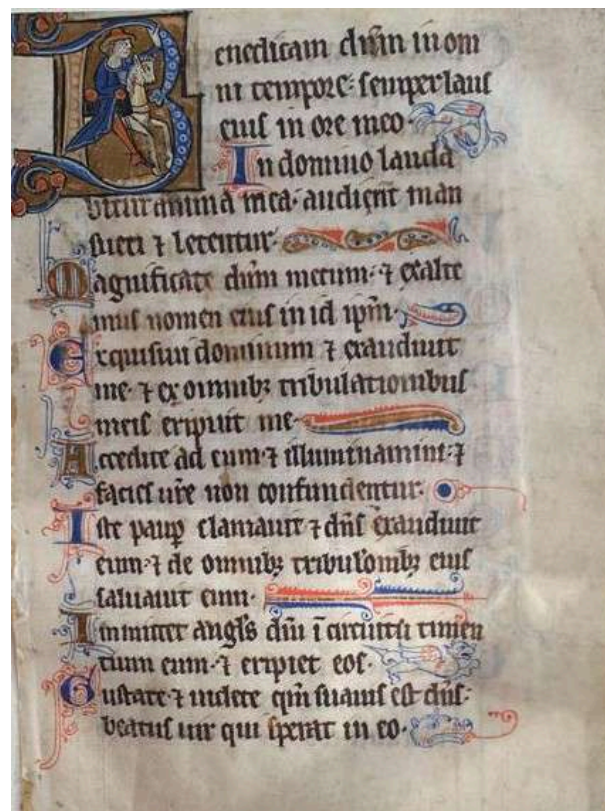 Benedicam dn̄m in om
ni tempore: semper laus
eius in ore meo
In domino lauda
bitur anima mea: audient man
sueti ⁊ letentur.
Magnificate dn̄m mecum: ⁊ exalte
mus nomen eius in id ip̄m.
Exquisiui dominum ⁊ exaudiuit
me: ⁊ ex omnibꝫ tribulationibus
meis eripuit me.
Accedite ad eum ⁊ illuminamini: ⁊
facies ur̄e non confundentur.
Iste paup̄ clamauit ⁊ dn̄s exaudiuit
eum: ⁊ de omnibꝫ tribul̄onibꝫ eius
saluauit eum.
Inmittet angl̄s dn̄i ī circuitu timen
tium eum: ⁊ eripiet eos.
Gustate ⁊ uidete qm̄ suauis est dn̄s:
beatus uir qui sperat in eo.